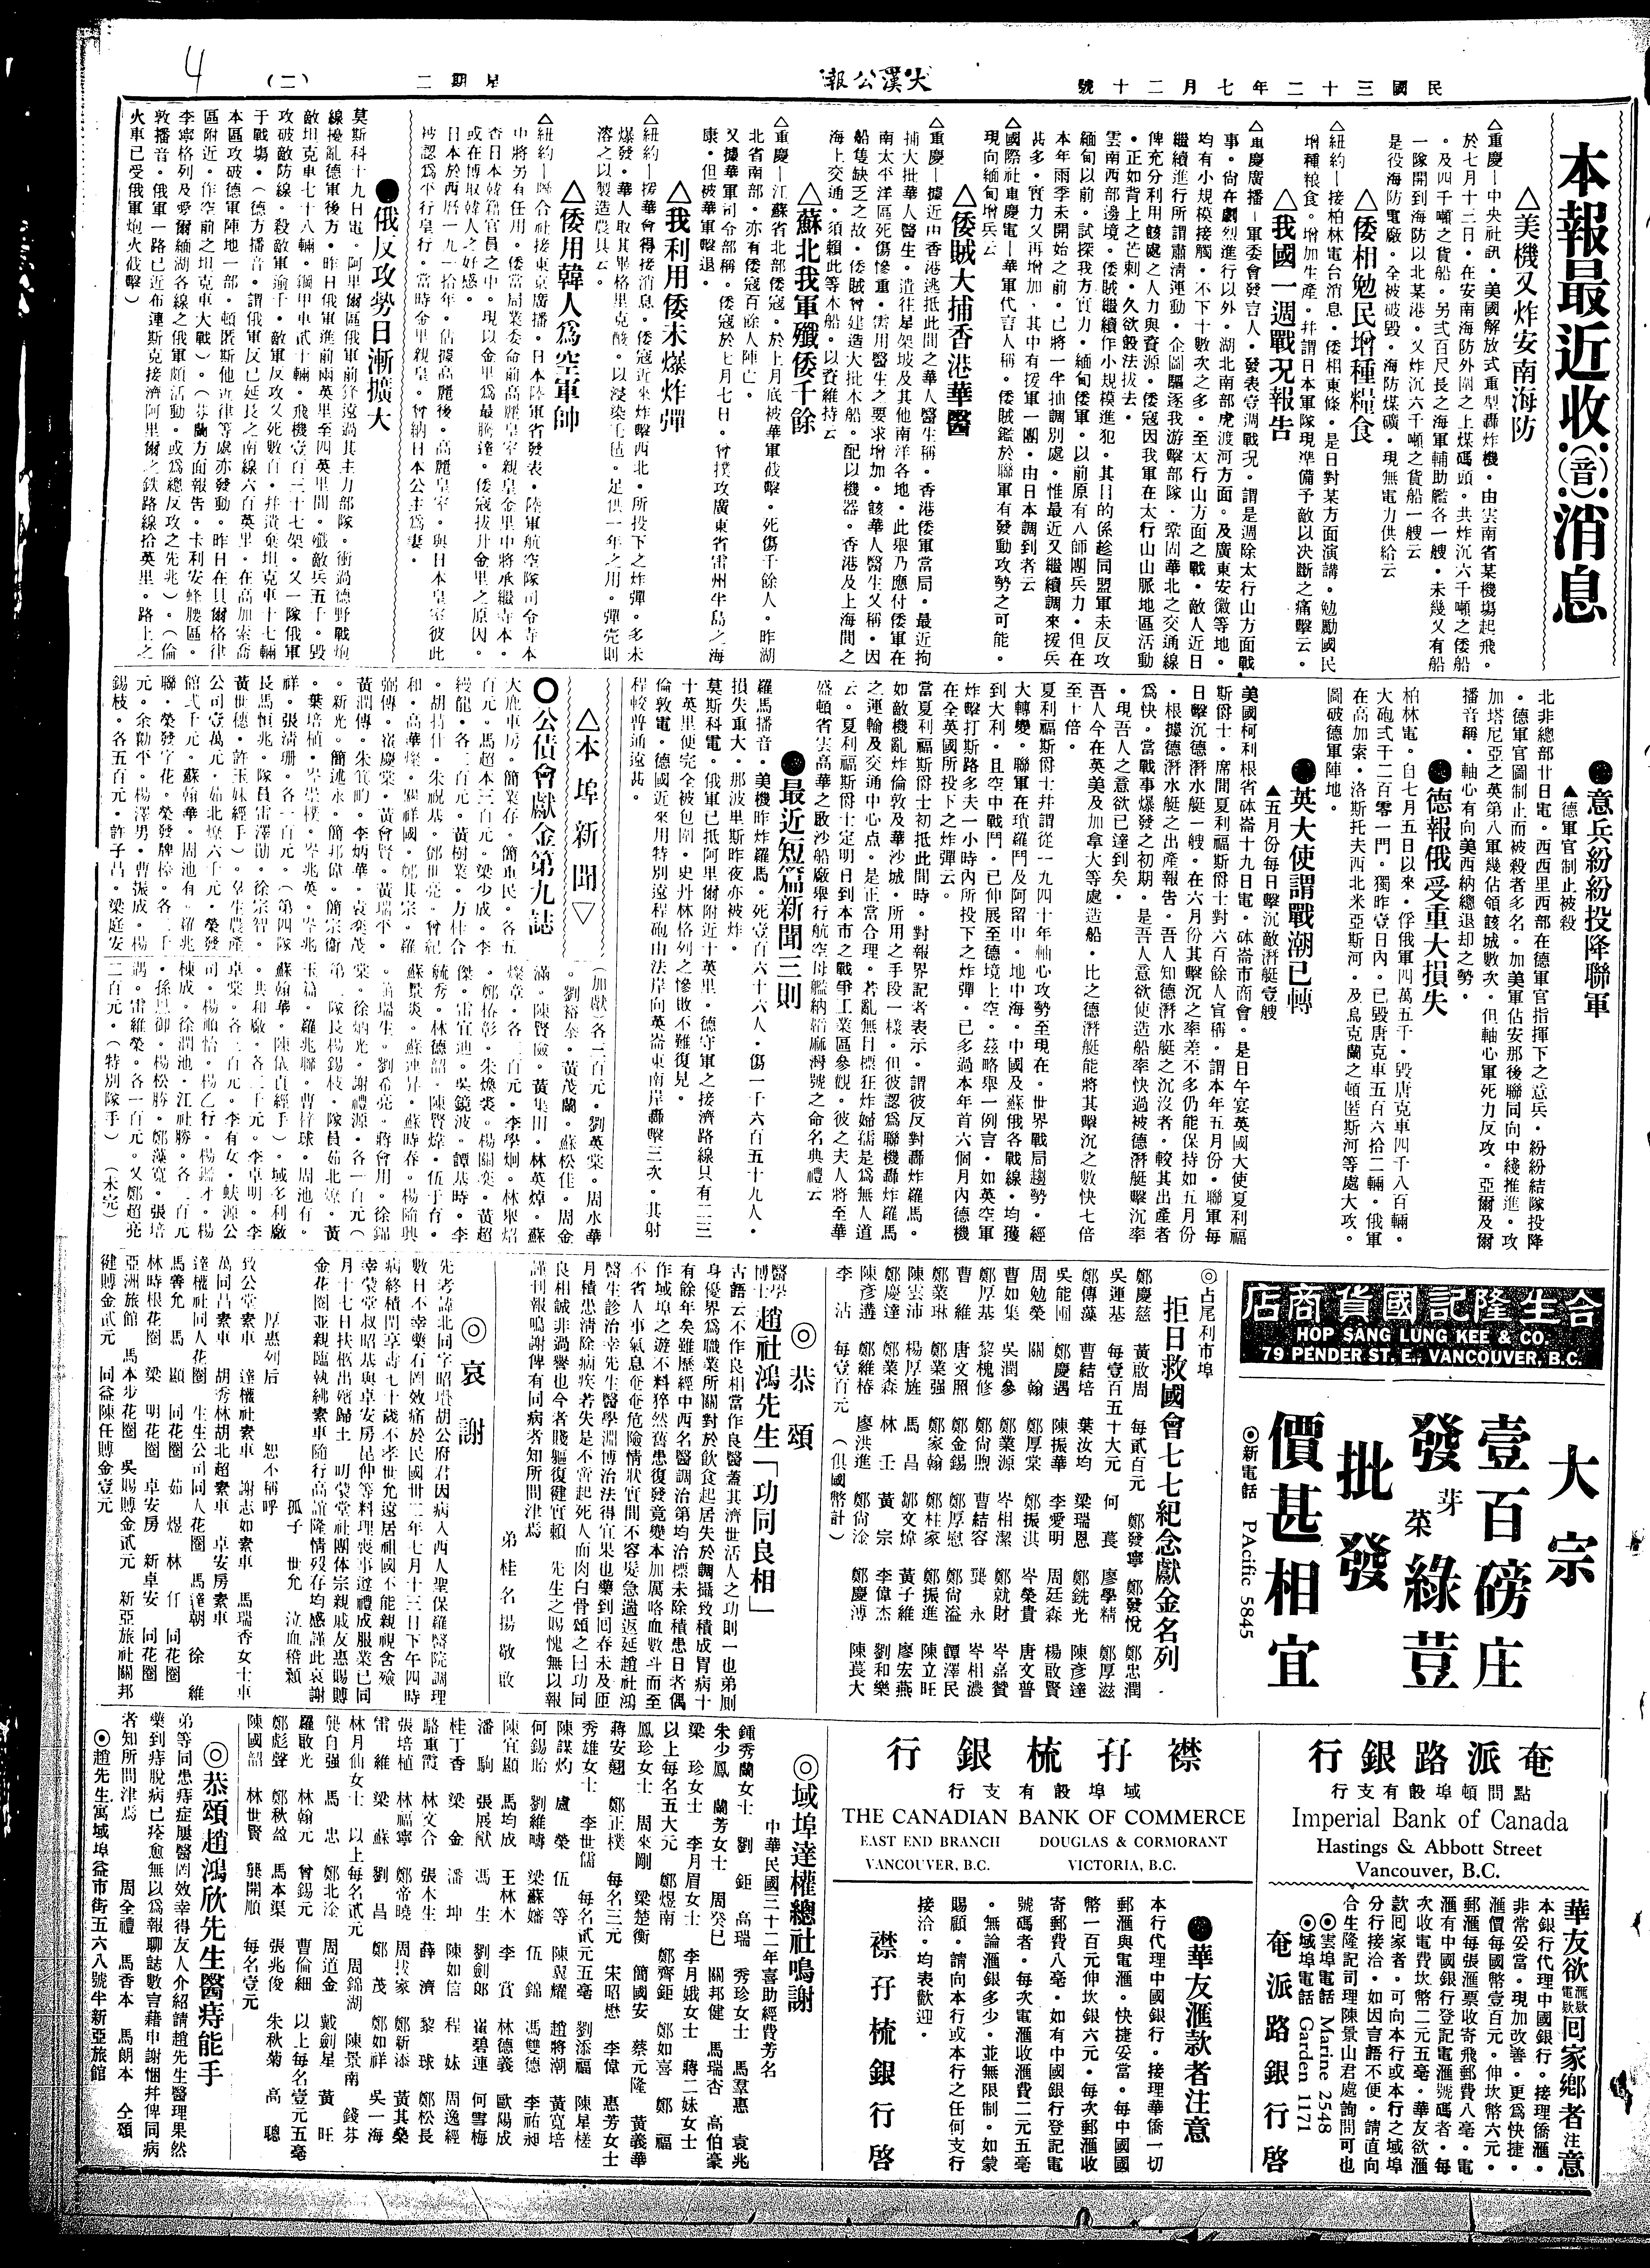 民國三十二年七月二十號
大漢公報
星期二
(二)
4
本報最近收(音)消息
△美機又炸安南海防
△重慶—中央社訊。美國解放式重型轟炸機。由雲南省某機場起飛。
於七月十二日。在安南海防外圍之上煤碼頭。共炸沉六千噸之倭船
。及四千噸之貨船。另式百尺長之海軍輔助艦各一艘。未幾又有船
一隊開到海防以北某港。又炸沉六千噸之貨船一艘云
是役海防電廠。全被破毀。海防煤礦。現無電力供給云
△倭相勉民增種糧食
△紐約—接柏林電台消息。倭相東條。是日對某方面演講。勉勵國民
增種粮食。增加生產。幷謂日本軍隊現準備予敵以決斷之痛擊云。
△我國一週戰況報告
△重慶廣播—軍委會發言人。發表壹週戰况。謂是週除太行山方面戰
事。尙在劇烈進行以外。湖北南部虎渡河方面。及廣東安徽等地。
均有小規模接觸。不下十數次之多。至太行山方面之戰。敵人近日
繼續進行所謂肅清運動。企圖驅逐我游擊部隊。鞏固華北之交通線
俾充分利用該處之人力與資源。倭寇因我軍在太行山山脈地區活動
。正如背上之芒刺。久欲設法拔去。
雲南西部邊境。倭賊繼續作小規模進犯。其目的係趁同盟軍未反攻
緬甸以前。試探我方實力。緬甸倭軍。以前原有八師團兵力。但在
本年雨季未開始之前。已將一半抽調別處。惟最近又繼續調來援兵
甚多。實力又再增加。其中有援軍一團。由日本調到者云
△國際社重慶電—華軍代言人稱。倭賊鑑於聯軍有發動攻勢之可能。
現向緬甸增兵云
△倭賊大捕香港華醫
△重慶—據近由香港逃抵此間之華人醫生稱。香港倭軍當局。最近拘
捕大批華人醫生。遣往星架坡及其他南洋各地。此舉乃應付倭軍在
南太平洋區死傷慘重。需用醫生之要求增加。該華人醫生又稱。因
船隻缺乏之故。倭賊曾建造大批木船。配以機器。香港及上海間之
海上交通。須賴此等木船。以資維持云
△蘇北我軍殲倭千餘
△重慶—江蘇省北部倭寇。於上月底被華軍截擊。死傷千餘人。昨湖
北省南部。亦有倭寇百餘人陣亡。
又據華軍司令部稱。倭寇於七月七日。曾撲攻廣東省雷州半島之海
康。但被華軍擊退。
△我利用倭未爆炸彈
△紐約—援華會得接消息。倭寇近來炸擊西北。所投下之炸彈。多未
爆發。華人取其畢格里克酸。以浸染毛毡。足供一年之用。彈壳則
溶之以製造農具云。
△倭用韓人爲空軍帥
△紐約—聯合社接東京廣播。日本陸軍省發表。陸軍航空隊司令寺本
中將另有任用。倭當局業委命前高麗皇室親皇金里中將承繼寺本。
查日本韓籍官員之中。現以金里爲最騰達。倭寇拔升金里之原因。
或在博取韓人之好感。
日本於西曆一九一拾年。佔據高麗後。高麗皇室。與日本皇室彼此
被認爲平行皇行。當時金里親皇。曾納日本公主爲妻。
●俄反攻勢日漸擴大
莫斯科十九日電。阿里爾區俄軍前鋒遠過其主力部隊。衝過德野戰炮
線擾亂德軍後方。昨日俄軍進前兩英里至四英里間。殲敵兵五千。毀
敵坦克車七十八輛。鋼甲車貳十輛。飛機壹百三十七架。又一隊俄軍
攻破敵防線。殺敵軍逾千。敵軍反攻又死數百。幷遺棄坦克車十七輛
于戰場。(德方播音。謂俄軍反已延長之南線六百英里。在高加索喬
本區攻破德軍陣地一部。頓匿斯他近律等處亦發動。昨日在貝爾格律
區附近。作空前之坦克車大戰)。(芬蘭方面報告。卡利安蜂腰區。
李寧格列及愛爾緬湖各線之俄軍頗活動。或爲總反攻之先兆)。(倫
敦播音。俄軍一路已近布連斯克接濟阿里爾之鉄路線拾英里。路上之
火車已受俄軍炮火截擊)
●意兵紛紛投降聯軍
▲德軍官制止被殺
北非總部廿日電。西西里西部在德軍官指揮下之意兵。紛紛結隊投降
。德軍官圖制止而被殺者多名。加美軍佔安那後聯同向中綫推進。攻
加塔尼亞之英第八軍幾佔領該城數次。但軸心軍死力反攻。亞爾及爾
播音稱。軸心有向美西納總退却之勢。
●德報俄受重大損失
柏林電。自七月五日以來。俘俄軍四萬五千。毀唐克車四千八百輛。
大砲式千二百零一門。獨昨壹日內。已毀唐克車五百六拾二輛。俄軍
在高加索。洛斯托夫西北米亞斯河。及烏克蘭之頓匿斯河等處大攻。
圖破德軍陣地。
●英大使謂戰潮已轉
▲五月份每日擊沉敵潛艇壹艘
美國柯利根省砵崙十九日電。砵崙市商會。是日午宴英國大使夏利福
斯爵士。席間夏利福斯爵士對六百餘人宣稱。謂本年五月份。聯軍每
日擊沉德潛水艇一艘。在六月份其擊沉之率差不多仍能保持如五月份
。根據德潛水艇之出產報告。吾人知德潛水艇之沉沒者。較其出產者
爲快。當戰事爆發之初期。是吾人意欲使造船率快過被德潛艇擊沉率
。現吾人之意欲已達到矣。
吾人今在英美及加拿大等處造船。比之德潛艇能將其擊沉之數快七倍
至十倍。
夏利福斯爵士幷謂從一九四十年軸心攻勢至現在。世界戰局趨勢。經
大轉變。聯軍在瓊羅門及阿留申。地中海。中國及蘇俄各戰線。均獲
到大利。且空中戰鬥。已伸展至德境上空。茲略舉一例言。如英空軍
炸擊打斯路多夫一小時內所投下之炸彈。已多過本年首六個月內德機
在全英國所投下之炸彈云。
當夏利福斯爵士初抵此間時。對報界記者表示。謂彼反對轟炸羅馬。
如敵機亂炸倫敦及華沙城。所用之手段一樣。但彼認爲聯機轟炸羅馬
之運輸及交通中心点。是正當合理。若亂無目標狂炸婦孺是爲無人道
云。夏利福斯爵士定明日到本市之戰爭工業區參觀。彼之夫人將至華
盛頓省雲高華之啟沙船廠舉行航空母艦納筠麻灣號之命名典禮云
●最近短篇新聞三則
羅馬播音。美機昨炸羅馬。死壹百六十六人。傷一千六百五十九人。
損失重大。那波里斯昨夜亦被炸。
莫斯科電。俄軍已抵阿里爾附近十英里。德守軍之接濟路線只有二三
十英里便完全被包圍。史丹林格列之慘敗不難復見。
倫敦電。德國近來用特別遠程砲由法岸向英崙東南岸轟擊三次。其射
程較普通遠甚。
△本埠新聞▽
○公債會獻金第九誌
大鹿車房。簡業存。簡重民。各五
百元。馬超本三百元。梁少成。李
。胡持什。朱祝基。鄧世亮。曾紀
祥。張清珊。各一百元。(第四隊
長馬恒兆。隊員雷澤勛。徐宗智。
黃世穗。許玉妹經手)。羣生農產
公司壹萬元。茹北燎六千元。榮發
館式千元。蘇翰華。周池有。羅兆
聯。榮發字花。榮發牌樁。各二千
元。余勤平。楊澤男。曹振成。楊
錫枝。各五百元。許子昌。梁庭安
(加獻各二百元。劉英棠。周水華
。劉裕泰。黃茂蘭。蘇松佳。周金
滿。陳賢儉。黃集田。林英焯。蘇
燦章。各二百元。李學炯。林舉焰
。鄭椿彰。朱煥裘。楊關葉。黃超
傑。雷宜迪。吳鏡波。譚基時。李
毓秀。林德韶。陳賢煒。伍于有。
蘇景炎。蘇連昇。蘇時春。楊隨興
第二隊長楊錫枝。隊員茹北燎。黃
玉篇。羅兆聯。曹梓球。周池有。
蘇翰華。陳儀貞經手)。域多利廠
。共和廠。各二千元。李卓明。李
卓棠。各二百元。李有女。蚨源公
司。楊順怡。楊乙行。楊鑑才。楊
棟成。徐潤池。江社勝。各一百元
。孫恩御。楊松勝。鄭藻寬。張培
調。雷維榮。各一百元。又鄭超亮
二百元。(特別隊手)(未完)
合生隆記國貨商店
HOP SANG LUNG KEE & CO.
79 PENDER ST. E. VANCOUVER, B.C.
大宗
壹百磅庄
發芽菜綠荳
批發
價甚相宜
◎新電話 PAcific 5845
◎占尾利市埠
拒日救國會七七紀念獻金名列
鄭慶慈 黃啟周 每貳百元 鄭發寧 鄭發悅
吳運基 每壹百五十大元 何萇 廖學精 鄭忠潤
鄭傳藻 曹結培 葉汝均 梁瑞恩 鄭銑光 鄭厚滋
吳能團 鄭慶遇 陳振華 李愛明 周廷森 陳彥達
周勉榮 關翰 鄭厚棠 鄭振淇 岑榮貴 楊啟賢
曹如集 吳潤參 鄭業源 岑相潔 鄭就財 唐文普
鄭厚基 黎槐修 鄭尙煦 曹結容 龔永 岑嘉贊
曹維 唐文照 鄭金錫 鄭厚慰 鄭尙溢 岑相濃
鄭業琳 鄭業强 鄭家翰 鄭柱家 鄭振進 譚澤民
陳雲沛 楊厚旌 馬昌 鄒文煒 黃子維 陳立旺
鄭慶達 鄭業森 林壬 黃宗 李偉杰 廖宏燕
陳彥遴 鄭維椿 廖洪進 鄭尙淦 鄭慶溥 劉和樂
李沾 每壹百元 (俱國幣計) 陳萇大
◎恭頌
醫學博士趙社鴻先生「功同良相」
古語云不作良相當作良醫蓋其濟世活人之功則一也弟則
身優界爲職業所關對於飲食起居失於調攝致積成胃病十
有餘年矣雖歷經中西名醫調治第均治標未除積患日者偶
作域埠之遊不料猝然舊患復發竟變本加厲咯血數斗而至
不省人事氣息奄奄危險情狀實間不容髮急遄返延趙社鴻
醫生診治幸先生醫學淵博治法得宜果也藥到回春未及匝
月積患清除病疾若失是不啻起死人而肉白骨頌之曰功同
良相誠非過譽也今者賤軀復健實賴 先生之賜愧無以報
謹刊報鳴謝俾有同病者知所問津焉
弟桂名揚敬啟
◎哀謝
先考諱北同字昭譽胡公府君因病入西人聖保羅醫院調理
數日不幸藥石罔效痛於民國卅二年七月十三日下午四時
病終積閏享壽七十歲不孝世允遠居祖國不能親視含殮
幸蓂堂叔昭基與卓安房昆仲等料理喪事遵禮成服業已同
月十七日扶柩出殯歸土 叨蓂堂社團体宗親戚友惠賜賻
金花圈並親臨執紼素車随行高誼隆情歿存均感謹此哀謝
孤子 世允 泣血稽顙
厚惠列后 恕不稱呼
致公堂素車 達權社素車 謝志如素車 馬瑞香女士車
萬同昌素車 胡秀林胡北超素車 卓安房素車
達權社同人花圈 生生公司同人花圈 馬達朝 徐維
馬善允 馬顯 同花圈 茹煜 林仔 同花圈
林時根花圈 梁明花圈 卓安房 新卓安 同花圈
亞洲旅館 馬本步花圈 吳賜賻金貳元 新亞旅社關邦
健賻金貳元 同益陳任賻金壹元
奄派路銀行
點問頓埠設有支行
Imperial Bank of Canada
Hastings & Abbott Street
Vancouver, B.C.
華友欲滙款電款回家鄉者注意
本銀行代理中國銀行。接理僑滙。
非常妥當。現加改善。更爲快捷。
滙價每國幣壹百元。伸坎幣六元。
郵滙每張滙票收寄飛郵費八毫。電
滙有中國銀行登記電滙號碼者。每
次收電費坎幣二元五毫。華友欲滙
款回家者。可向本行或本行之域埠
分行接洽。如因言語不便。請直向
合生隆記司理陳景山君處詢問可也
◎雲埠電話 Marine 2548
◎域埠電話 Garden 1171
奄派路銀行啓
襟孖梳銀行
域埠設有支行
THE CANADIAN BANK OF COMMERCE
EAST END BRANCH DOUGLAS & CORMORANT
VANCOUVER, B.C. VICTORIA, B.C.
●華友滙款者注意
本行代理中國銀行。接理華僑一切
郵滙與電滙。快捷妥當。每中國國
幣一百元伸坎銀六元。每次郵滙收
寄郵費八毫。如有中國銀行登記電
號碼者。每次電滙收滙費二元五毫
。無論滙銀多少。並無限制。如蒙
賜顧。請向本行或本行之任何支行
接洽。均表歡迎。
襟孖梳銀行啓
◎域埠達權總社鳴謝
中華民國三十二年喜助經費芳名
鍾秀蘭女士 劉鉅 高瑞 秀珍女士 馬羣惠 袁兆
朱少鳳 蘭芳女士 周癸巳 關邦健 馬瑞杏 高伯豪
梁珍女士 李月眉女士 李月娥女士 蔣二妹女士
以上每名五大元 鄭煜南 鄭齊鉅 鄭如喜 鄭福
鳳珍女士 周來剛 梁楚衡 簡國安 蔡元隆 黃義華
蔣安翹 鄭正樸 每名三元 宋昭懋 李偉 惠芳女士
秀雄女士 李世儒 每名貳元五毫 劉添福 陳星槎
陳謀灼 盧榮 伍等 陳冀耀 趙將潮 黃寬培
何錫貽 劉維疇 梁蘇嬸 伍錦 馮雙德 李祐昶
陳宜顯 馬均成 王林木 李賞 林德義 歐陽成
潘駒 張展猷 馮生 劉劍郎 崔碧連 何雪梅
桂丁香 梁金 潘坤 陳如信 程妹 周逸經
駱重霞 林文合 張木生 薛濟 黎球 鄭松長
張培植 林福寧 鄭帝曉 周扶家 鄭新添 黃其燊
雷維 梁蘇 劉昌 鄭茂 鄭如祥 吳一海
林月仙女士 以上每名貳元 周錦湖 陳景南 錢芬
龔自强 馬忠 鄭北淦 周道金 戴劍星 黃旺
羅啟光 林翰元 曾錫元 曹倫細 以上每名壹元五毫
鄭彪聲 鄭秋盈 馬本渠 張兆俊 朱秋菊 高聰
陳國韶 林世賢 龔開順 每名壹元
◎恭頌趙鴻欣先生醫痔能手
弟等同患痔症屢醫罔效幸得友人介紹請趙先生醫理果然
藥到痔脫病已痊愈無以爲報聊誌數言藉申謝悃幷俾同病
者知所問津焉 周全禮 馬香本 馬朗本 仝頌
◎趙先生寓域埠益市街五六八號半新亞旅館